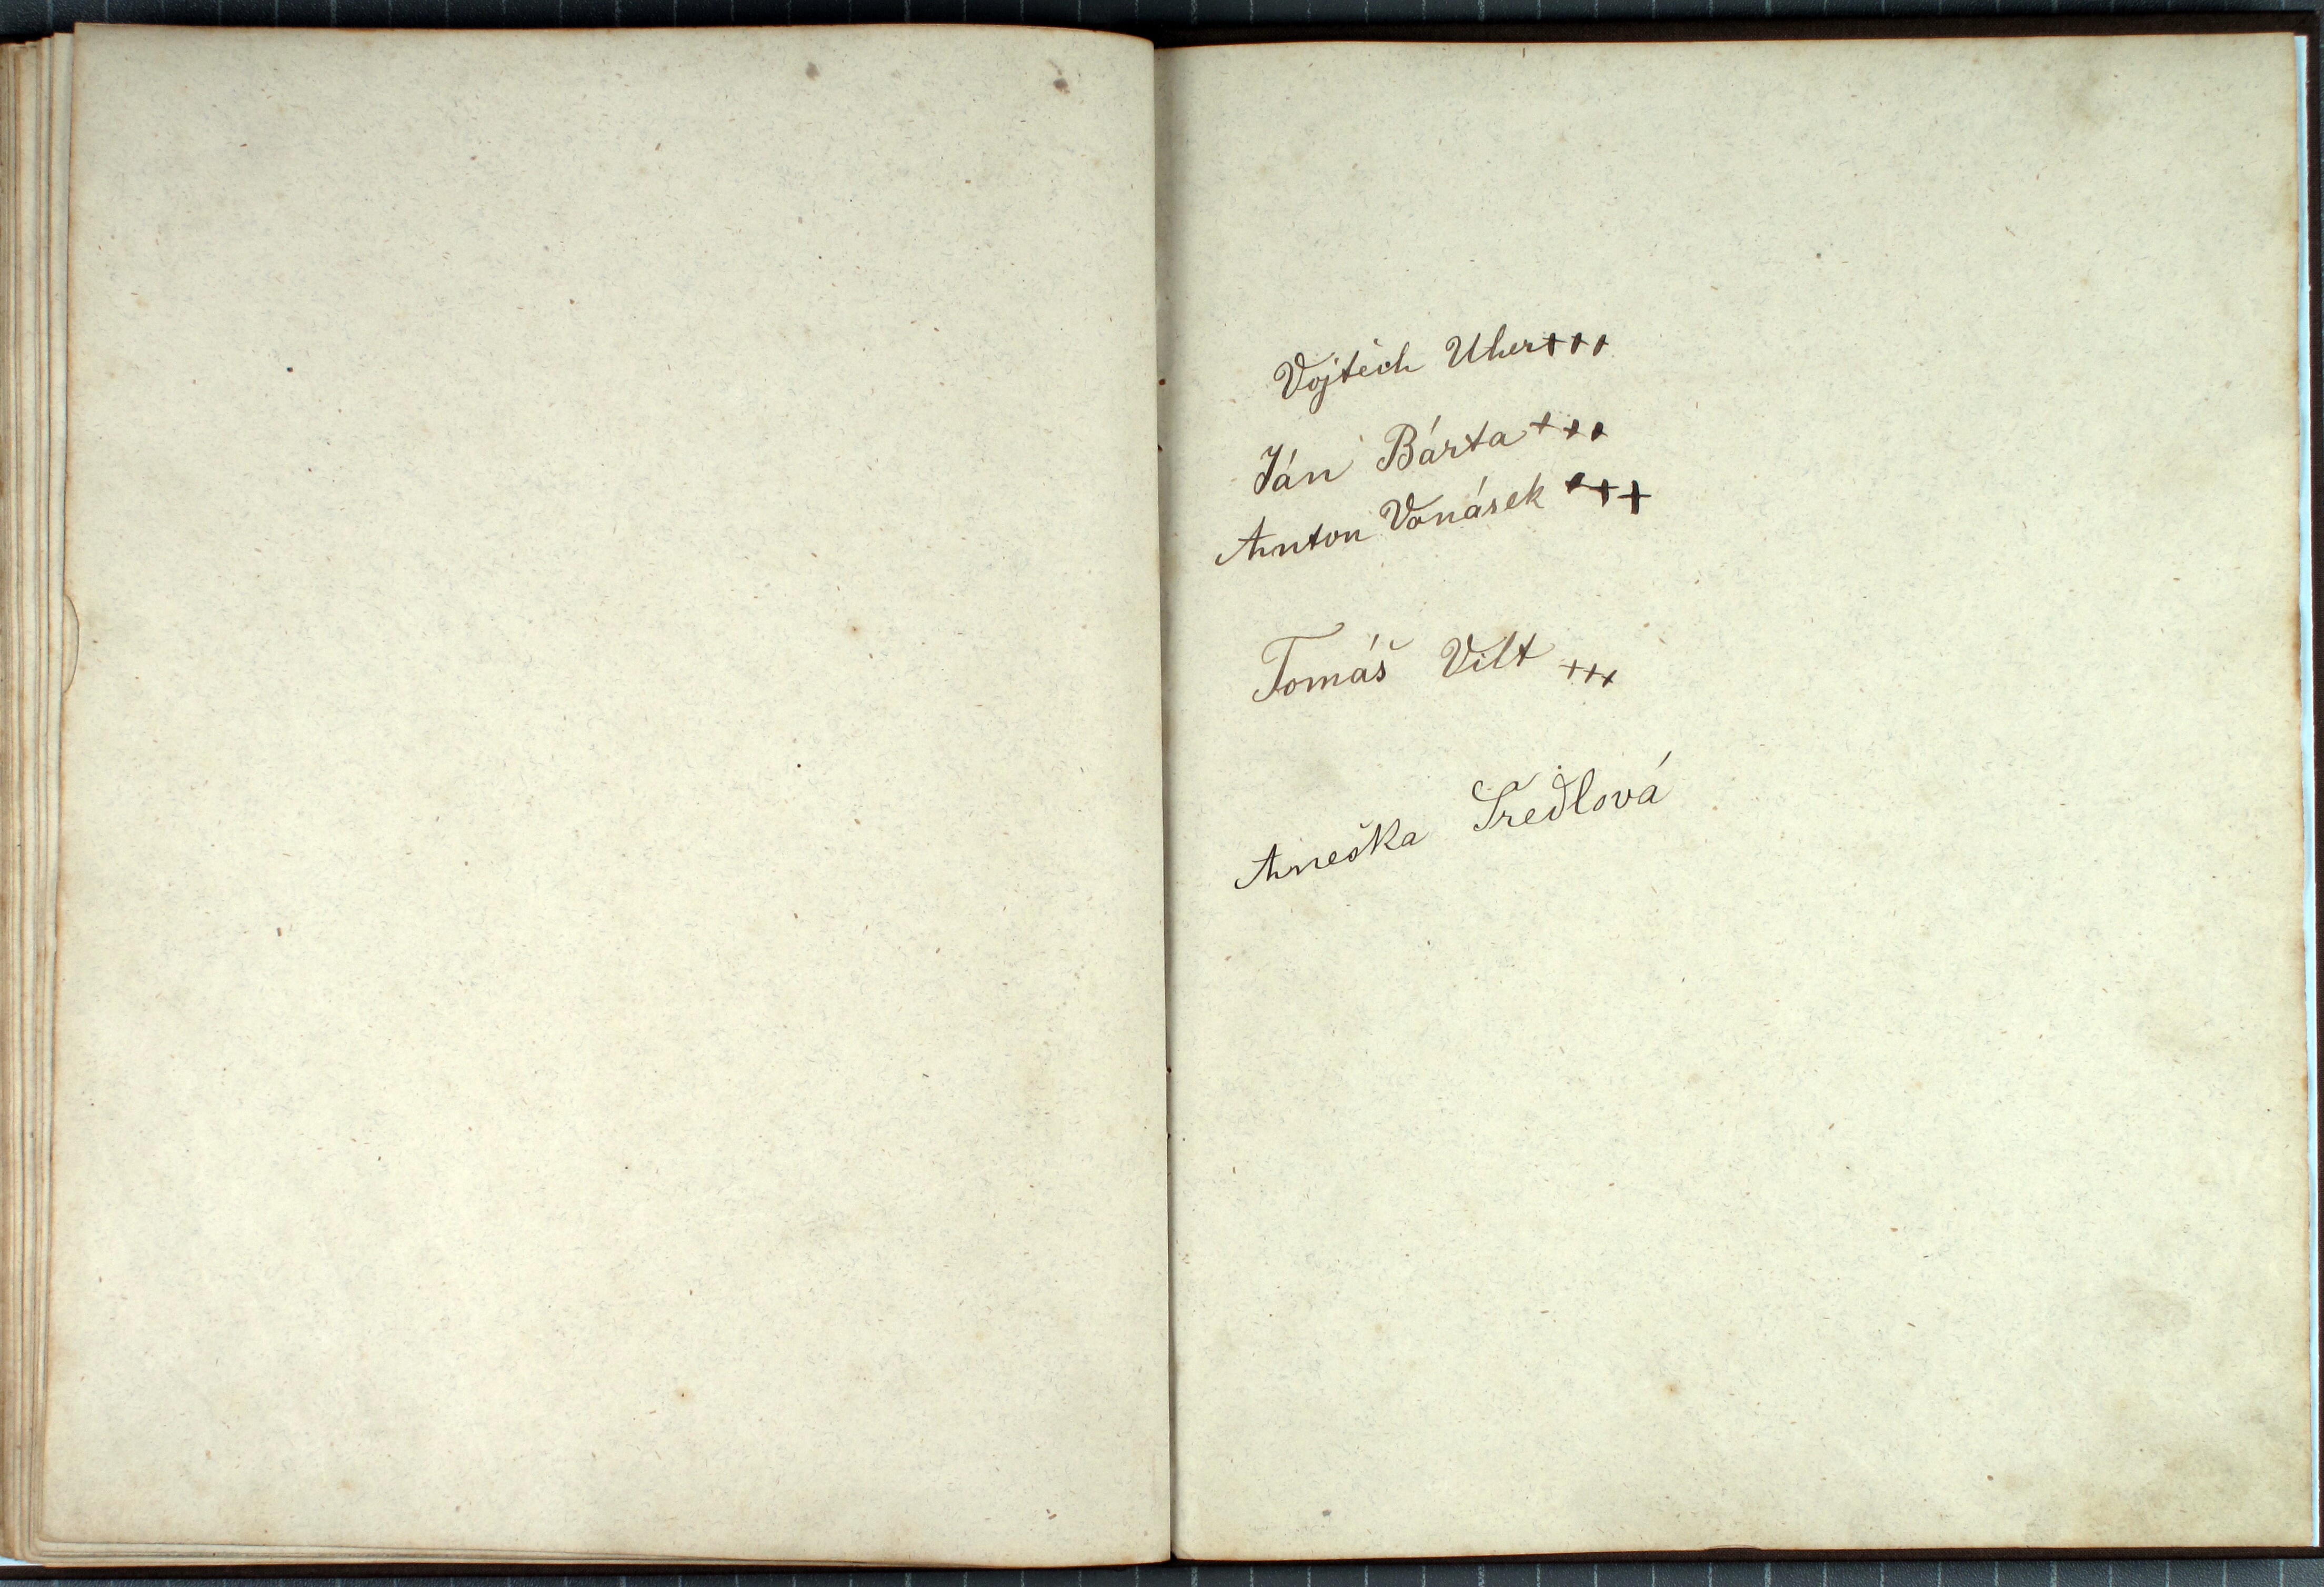 Vojtěch Uher +++
Ján Bárta +++
Anton Vonásek +++
Tomáš Vilt +++
Aneška